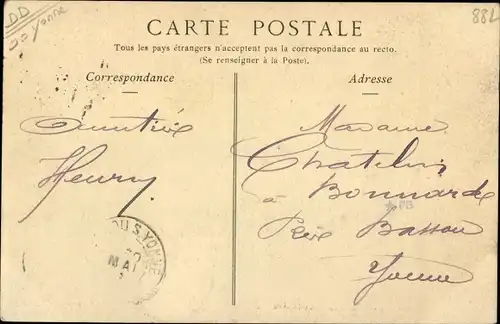 DD
Yonne
88L
CARTE POSTALE
Tous les pays étrangers n'acceptent pas la correspondance au recto.
(Se renseigner à la Poste).
Correspondance
Adresse
Amitié
Henry.
Madame
Chatelin
à Bonnard
Près Bassou
Yonne
YONNE
MAI